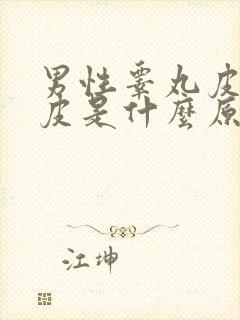 男性睾丸皮
皮是什麼原
江坤